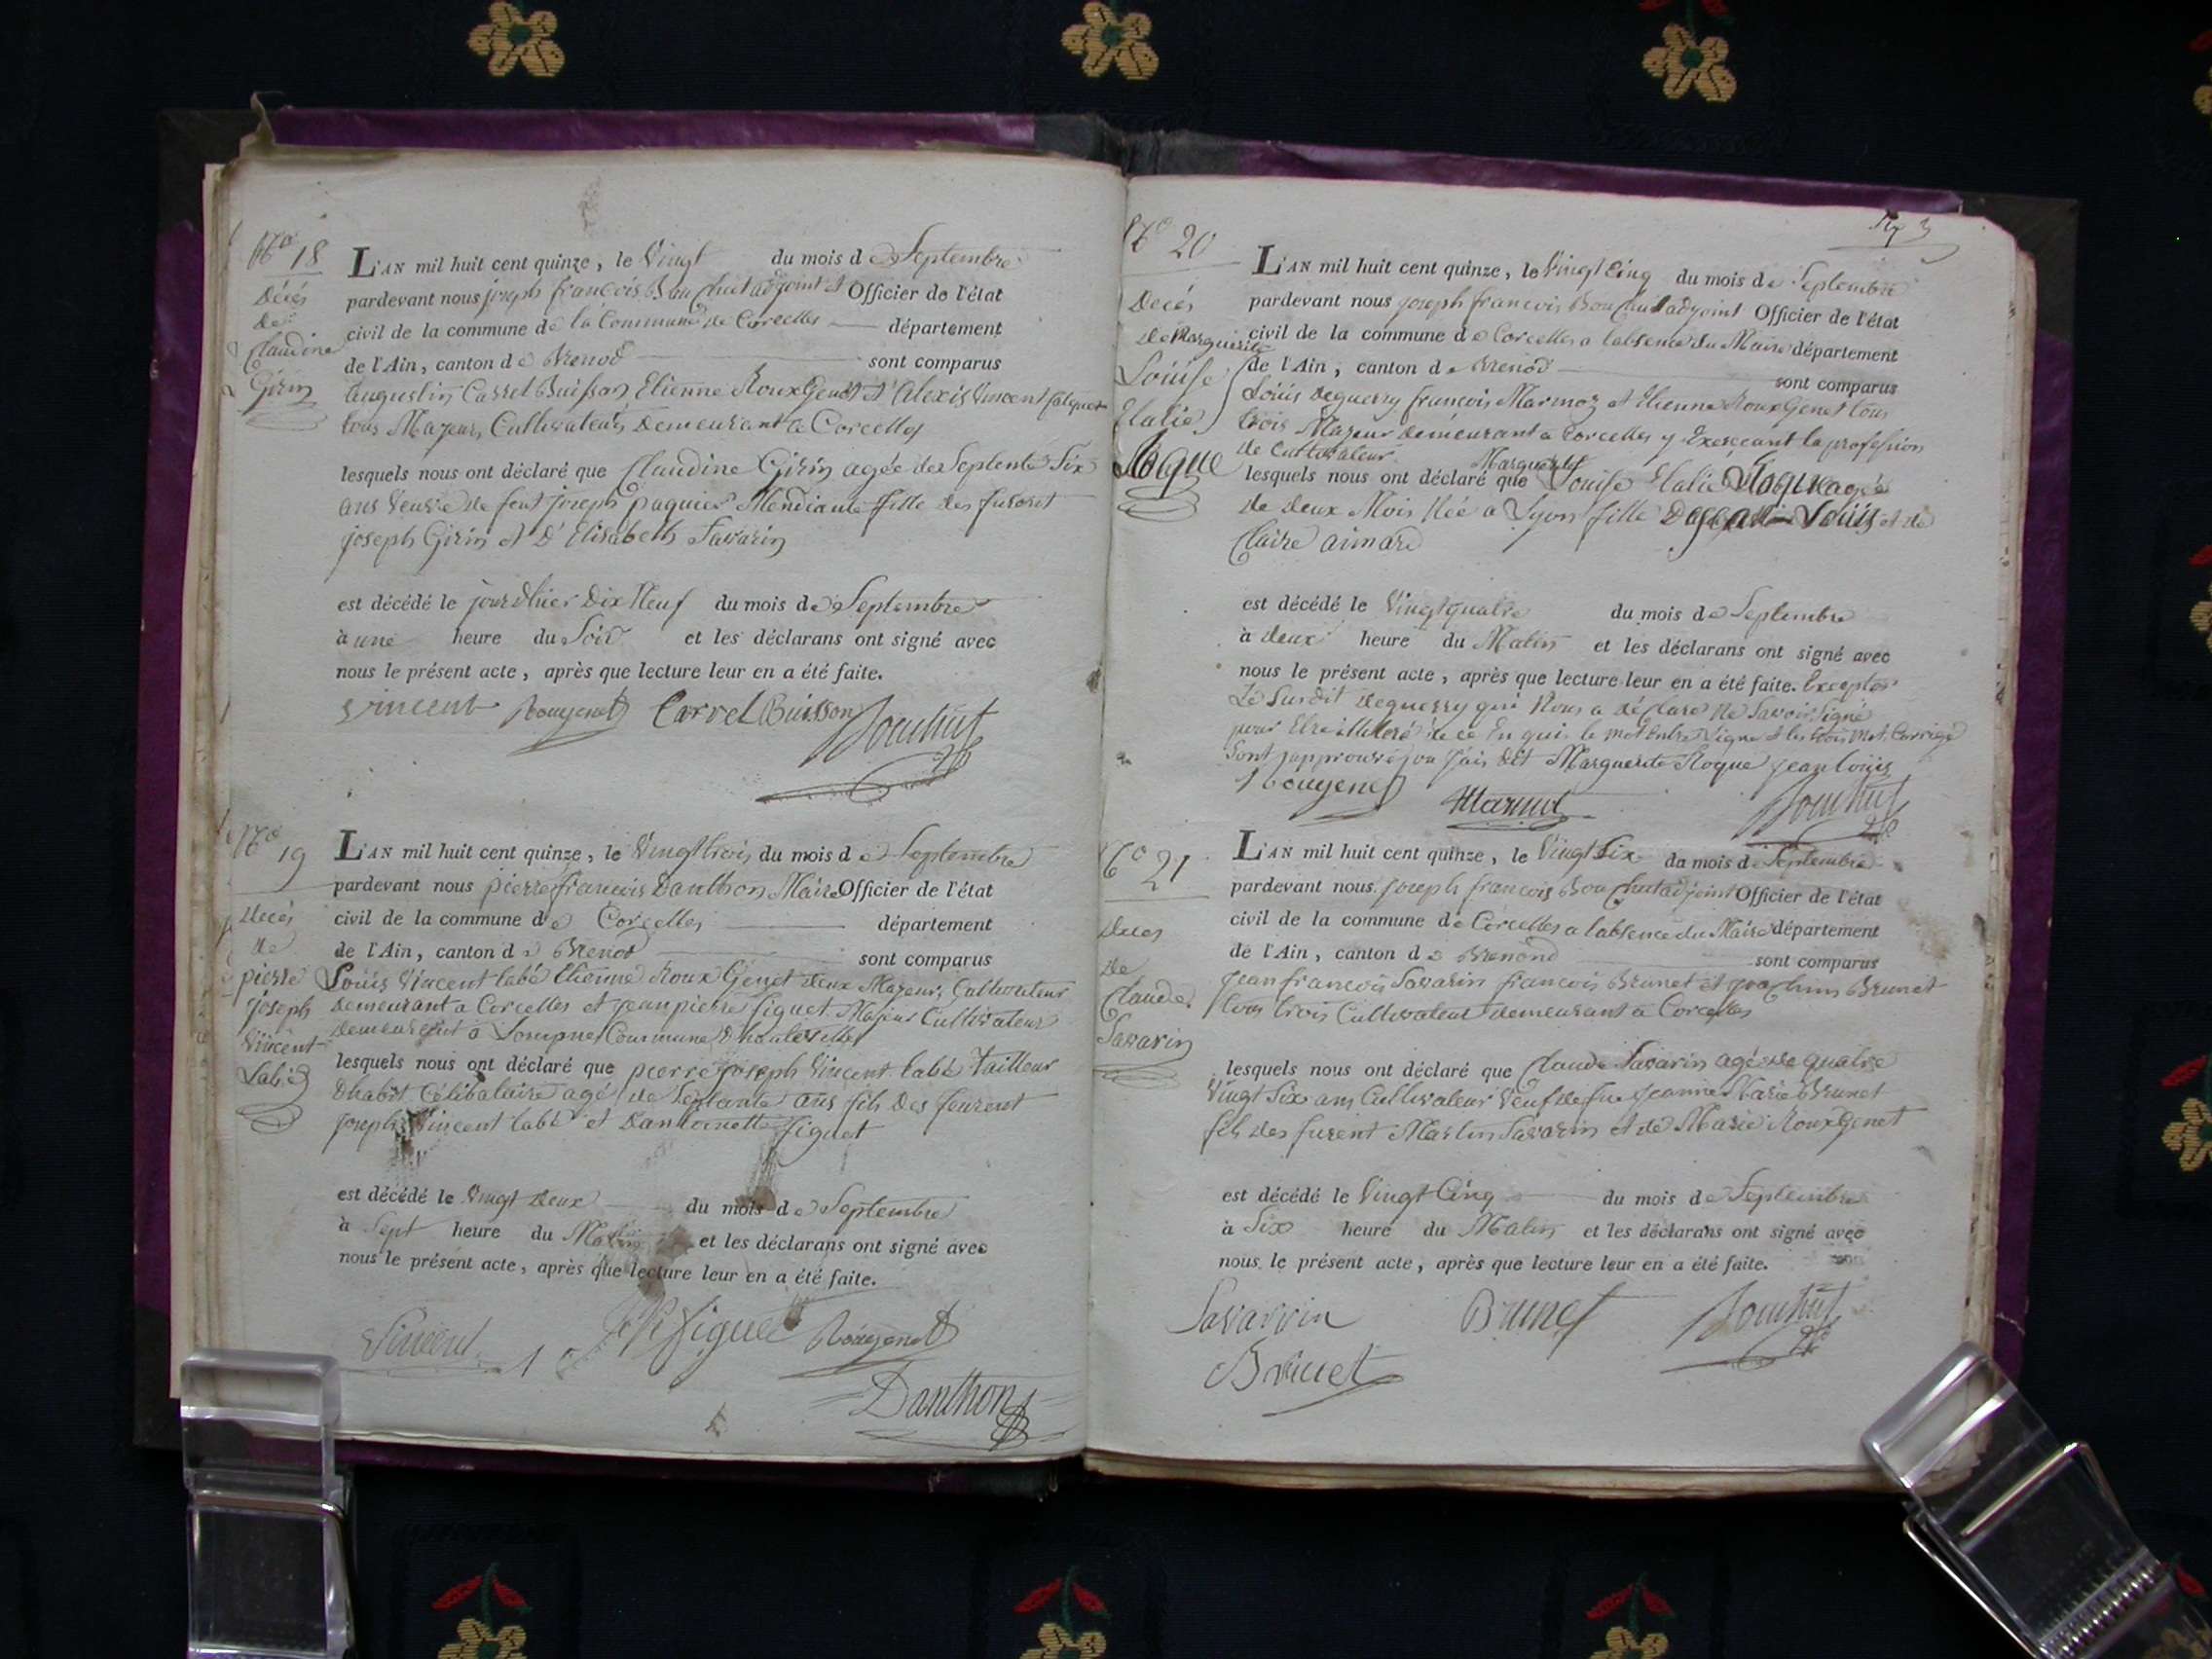 N.o 18
Décés
de
Claudine
Girin
L'AN mil huit cent quinze, le Vingt du mois de Septembre
pardevant nous joseph françois adjoint Officier de l'état
civil de la commune de la Commune de Corcelles département
de l'Ain, canton de Brenod sont comparus
Augustin Carrel Buisson Etienne Roux Genet et Alexis Vincent
tous Majeurs Cultivateurs Demeurant a Corcelles
lesquels nous ont déclaré que Claudine Girin agée de Septente Six
ans Veuve de feut joseph paquier Mendiante fille des furent
joseph Girin et D'Elisabeth Savarin
est décédé le jour d'hier Dix Neuf du mois de Septembre
à une heure du Soir et les déclarans ont signé avec
nous le présent acte, après que lecture leur en a été faite.
Vincent Rougenet Carrel Buisson
N.o 19
Decés
de
pierre
joseph
Vincent
Labé
L'AN mil huit cent quinze, le Vingt trois du mois de Septembre
pardevant nous pierre françois Danthon Maire Officier de l'état
civil de la commune de Corcelles département
de l'Ain, canton de Brenod sont comparus
Louis Vincent labé Etienne Roux Genet deux Majeurs Cultivateur
demeurant a Corcelles et jean pierre figuet Majeur Cultivateur
demeurant a Commune D'hauteville
lesquels nous ont déclaré que pierre joseph Vincent labé tailleur
Dhabit Célibataire agé de Septante ans fils des feurent
joseph Vincent labé et Danthoinette figuet
est décédé le Vingt Deux du mois de Septembre
à Sept heure du Matin et les déclarans ont signé avec
nous le présent acte, après que lecture leur en a été faite.
Vincent figuet Rougenet
Danthon
N.o 20
Decés
de Marguerite
Louise
Elalie
Roque
L'AN mil huit cent quinze, le Vingt Cinq du mois de Septembre
pardevant nous joseph francois adjoint Officier de l'état
civil de la commune de Corcelles a labsence du Maire département
de l'Ain, canton de Brenod sont comparus
Louis Deguerry francois Marmoz et Etienne Roux Genet tous
trois Majeur demeurant a Corcelles y Exerçeant la profession
de Cultivateur
Marguerite
lesquels nous ont déclaré que Louise Elalie Roque agée
de deux Mois Née a Lyon fille Louis et de
Claire aimard
est décédé le Vingt quatre du mois de Septembre
à deux heure du Matin et les déclarans ont signé avec
nous le présent acte, après que lecture leur en a été faite. Excepter
Le Susdit Deguerry qui Nous a déclaré Ne Savoir Signé
pour Etre illiteré de ce Enquis le mot Entre Ligne et les trois Mot Corrigé
Sont approuvé Marguerite Roque jean louis
Rougenet
N.o 21
Deces
de
Claude
Savarin
L'AN mil huit cent quinze, le Vingt Six du mois de Septembre
pardevant nous joseph francois adjoint Officier de l'état
civil de la commune de Corcelles a labsence du Maire département
de l'Ain, canton de Brenond sont comparus
jean francois Savarin francois Brunet et joachim Brunet
tous trois Cultivateur demeurant a Corcelles
lesquels nous ont déclaré que Claude Savarin agé de quatre
Vingt Six ans Cultivateur Veuf de fue jeanne Marie Brunet
fils des furent Martin Savarin et de Marie Roux Genet
est décédé le Vingt Cinq du mois de Septembre
à Six heure du Matin et les déclarans ont signé avec
nous le présent acte, après que lecture leur en a été faite.
Savarin Brunet
Brunet